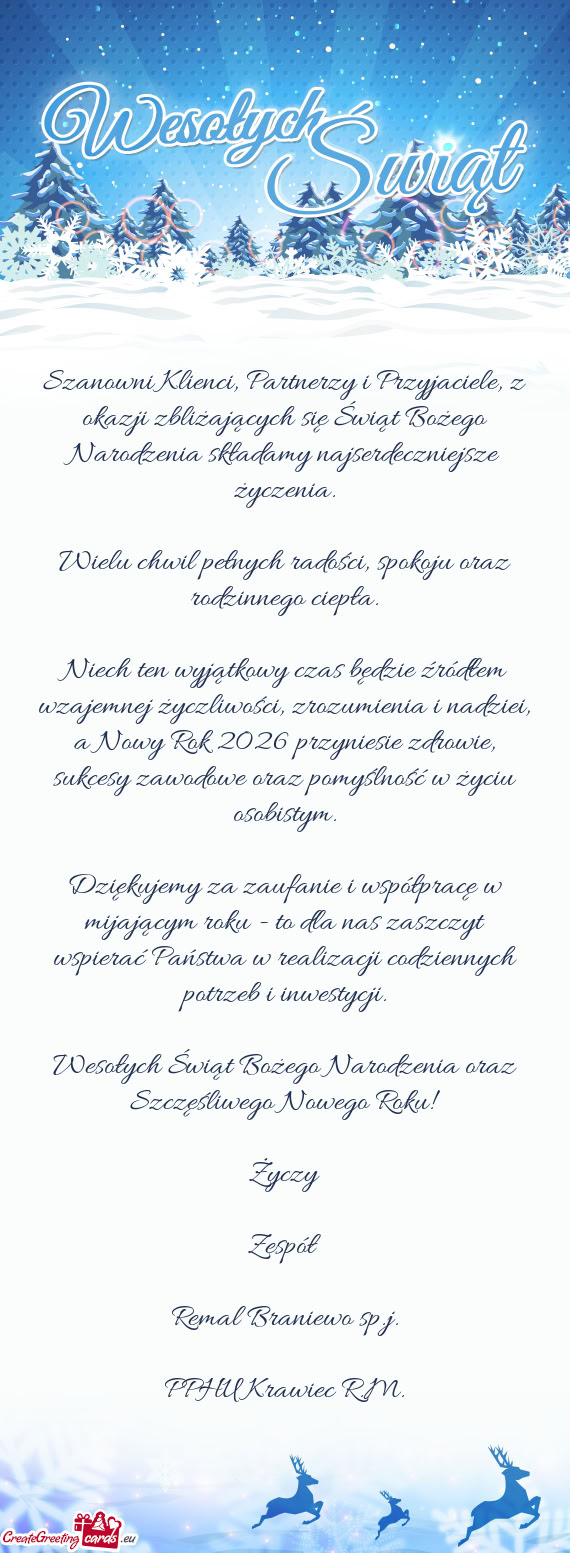 Wesołych
Świąt
Szanowni Klienci, Partnerzy i Przyjaciele, z
okazji zbliżających się Świąt Bożego
Narodzenia składamy najserdeczniejsze
życzenia.
Wielu chwil pełnych radości, spokoju oraz
rodzinnego ciepła.
Niech ten wyjątkowy czas będzie źródłem
wzajemnej życzliwości, zrozumienia i nadziei,
a Nowy Rok 2026 przyniesie zdrowie,
sukcesy zawodowe oraz pomyślność w życiu
osobistym.
Dziękujemy za zaufanie i współpracę w
mijającym roku - to dla nas zaszczyt
wspierać Państwa w realizacji codziennych
potrzeb i inwestycji.
Wesołych Świąt Bożego Narodzenia oraz
Szczęśliwego Nowego Roku!
Życzy
Zespół
Remal Braniewo sp.j.
PPHU Krawiec R.M.
CreateGreeting cards .eu